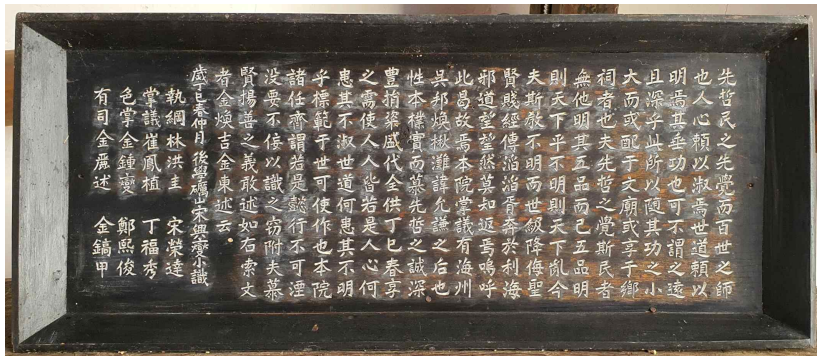 先哲民之先覺而百世之師
也人心賴以淑焉世道賴以
明焉其垂功也可不謂之遠
且深乎此所以隨其功之小
大而或配于文廟或享于鄕
祠者也夫先哲之覺斯民者
無他明其五品而已五品明
則天下平不明則天下亂今
夫斯敎不明而世級降侮聖
賢賤經傳滔滔胥奔於利海
邪道望望然莫知返焉嗚呼
此曷故焉本院掌議有海州
吳邦煥楸灘諱允謙之后也
性本樸實而慕先哲之誠深
豊捐粢盛代全供丁巳春享
之需使人人皆若是人心何
患其不淑世道何患其不明
乎標範于世可使作也本院
諸任齊謂若是懿行不可湮
没要不佞以識之窃附夫慕
賢揚善之義敢述如右索文
者金煥吉金東述云
歲丁巳春仲月 後學礪山宋興 小識
執綱林洪圭 宋榮達
掌議崔鳳植 丁福秀
色掌金鍾 鄭熙俊
有司金 述 金鎬甲